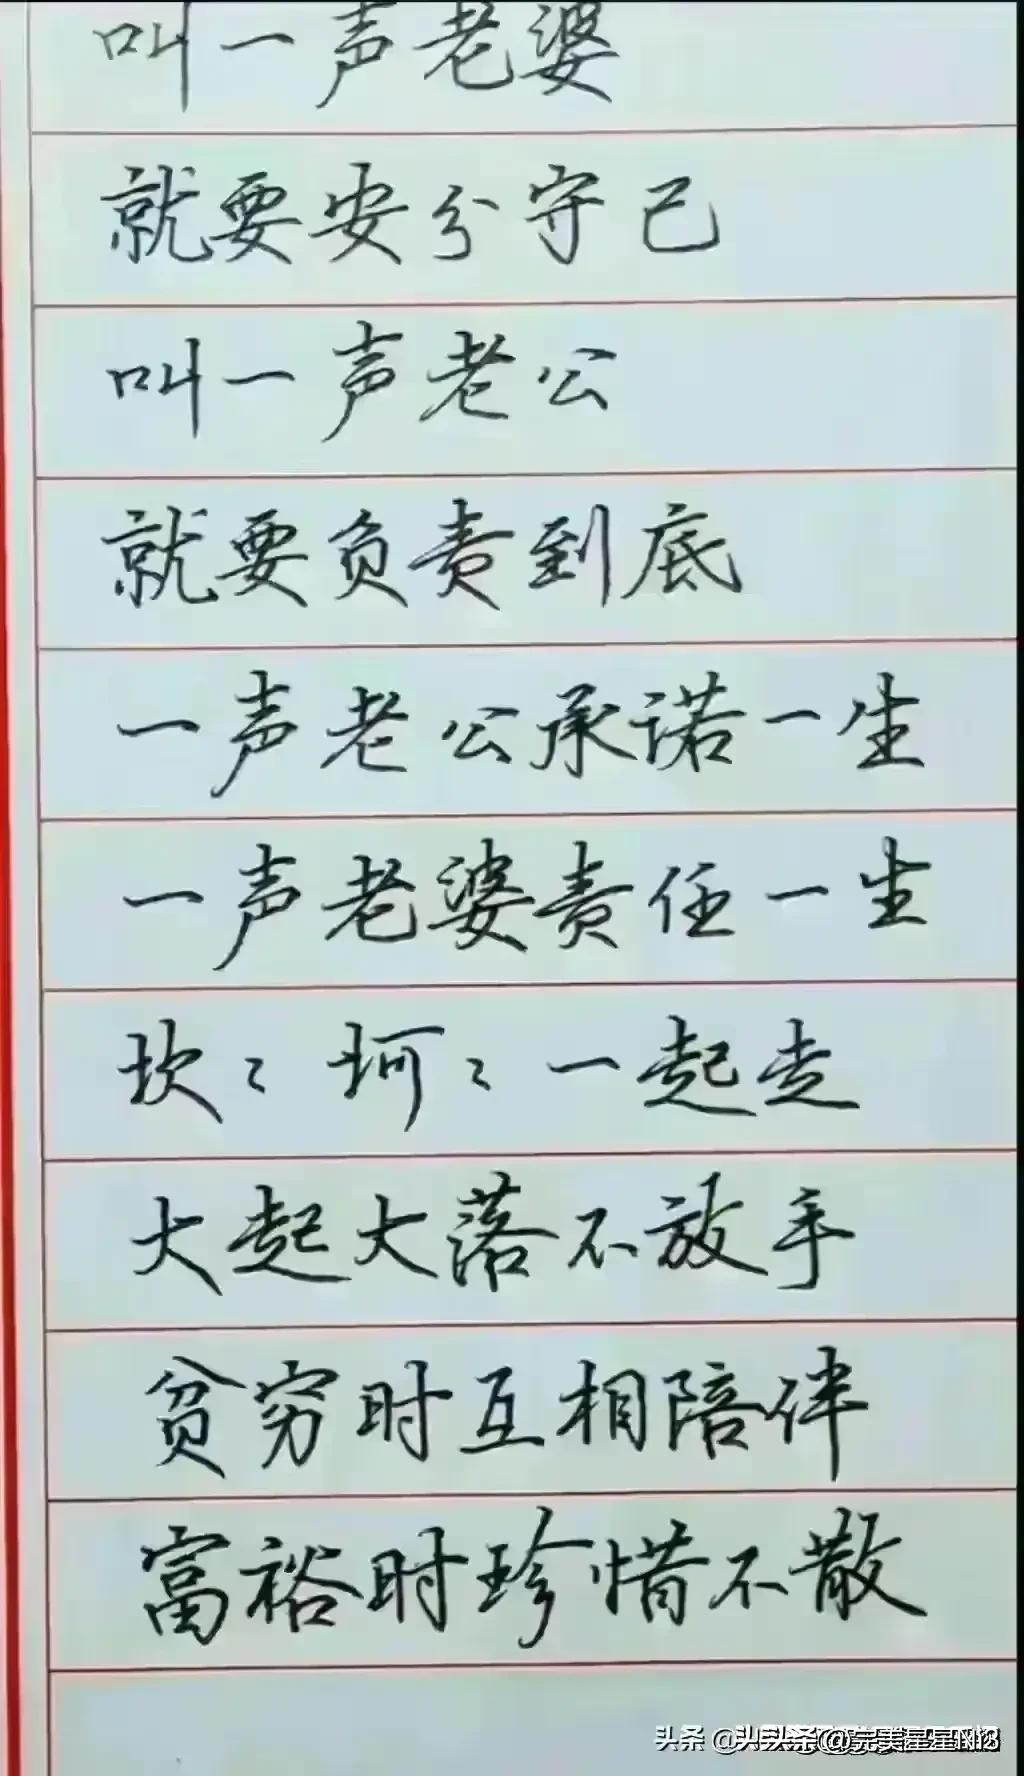 叫一声老婆
就要安分守己
叫一声老公
就要负责到底
一声老公承诺一生
一声老婆责任一生
坎〻坷〻一起走
大起大落不放手
贫穷时互相陪伴
富裕时珍惜不散
头条 @头头条@完美星星